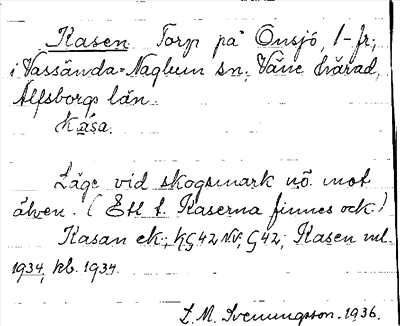 Kasen Torp på Onsjö, 1-fr;
i Vassända-Naglum sn; Väne härad,
Älfsborgs län.
Kåsa.
Läge vid skogsmark nö. mot
älven. (Ett t. Kaserna finnes ock.)
Kasan ek.; KG42 NV; G42; Kasen ml.
1934, kb. 1934.
L. M. Svenungsson. 1936.